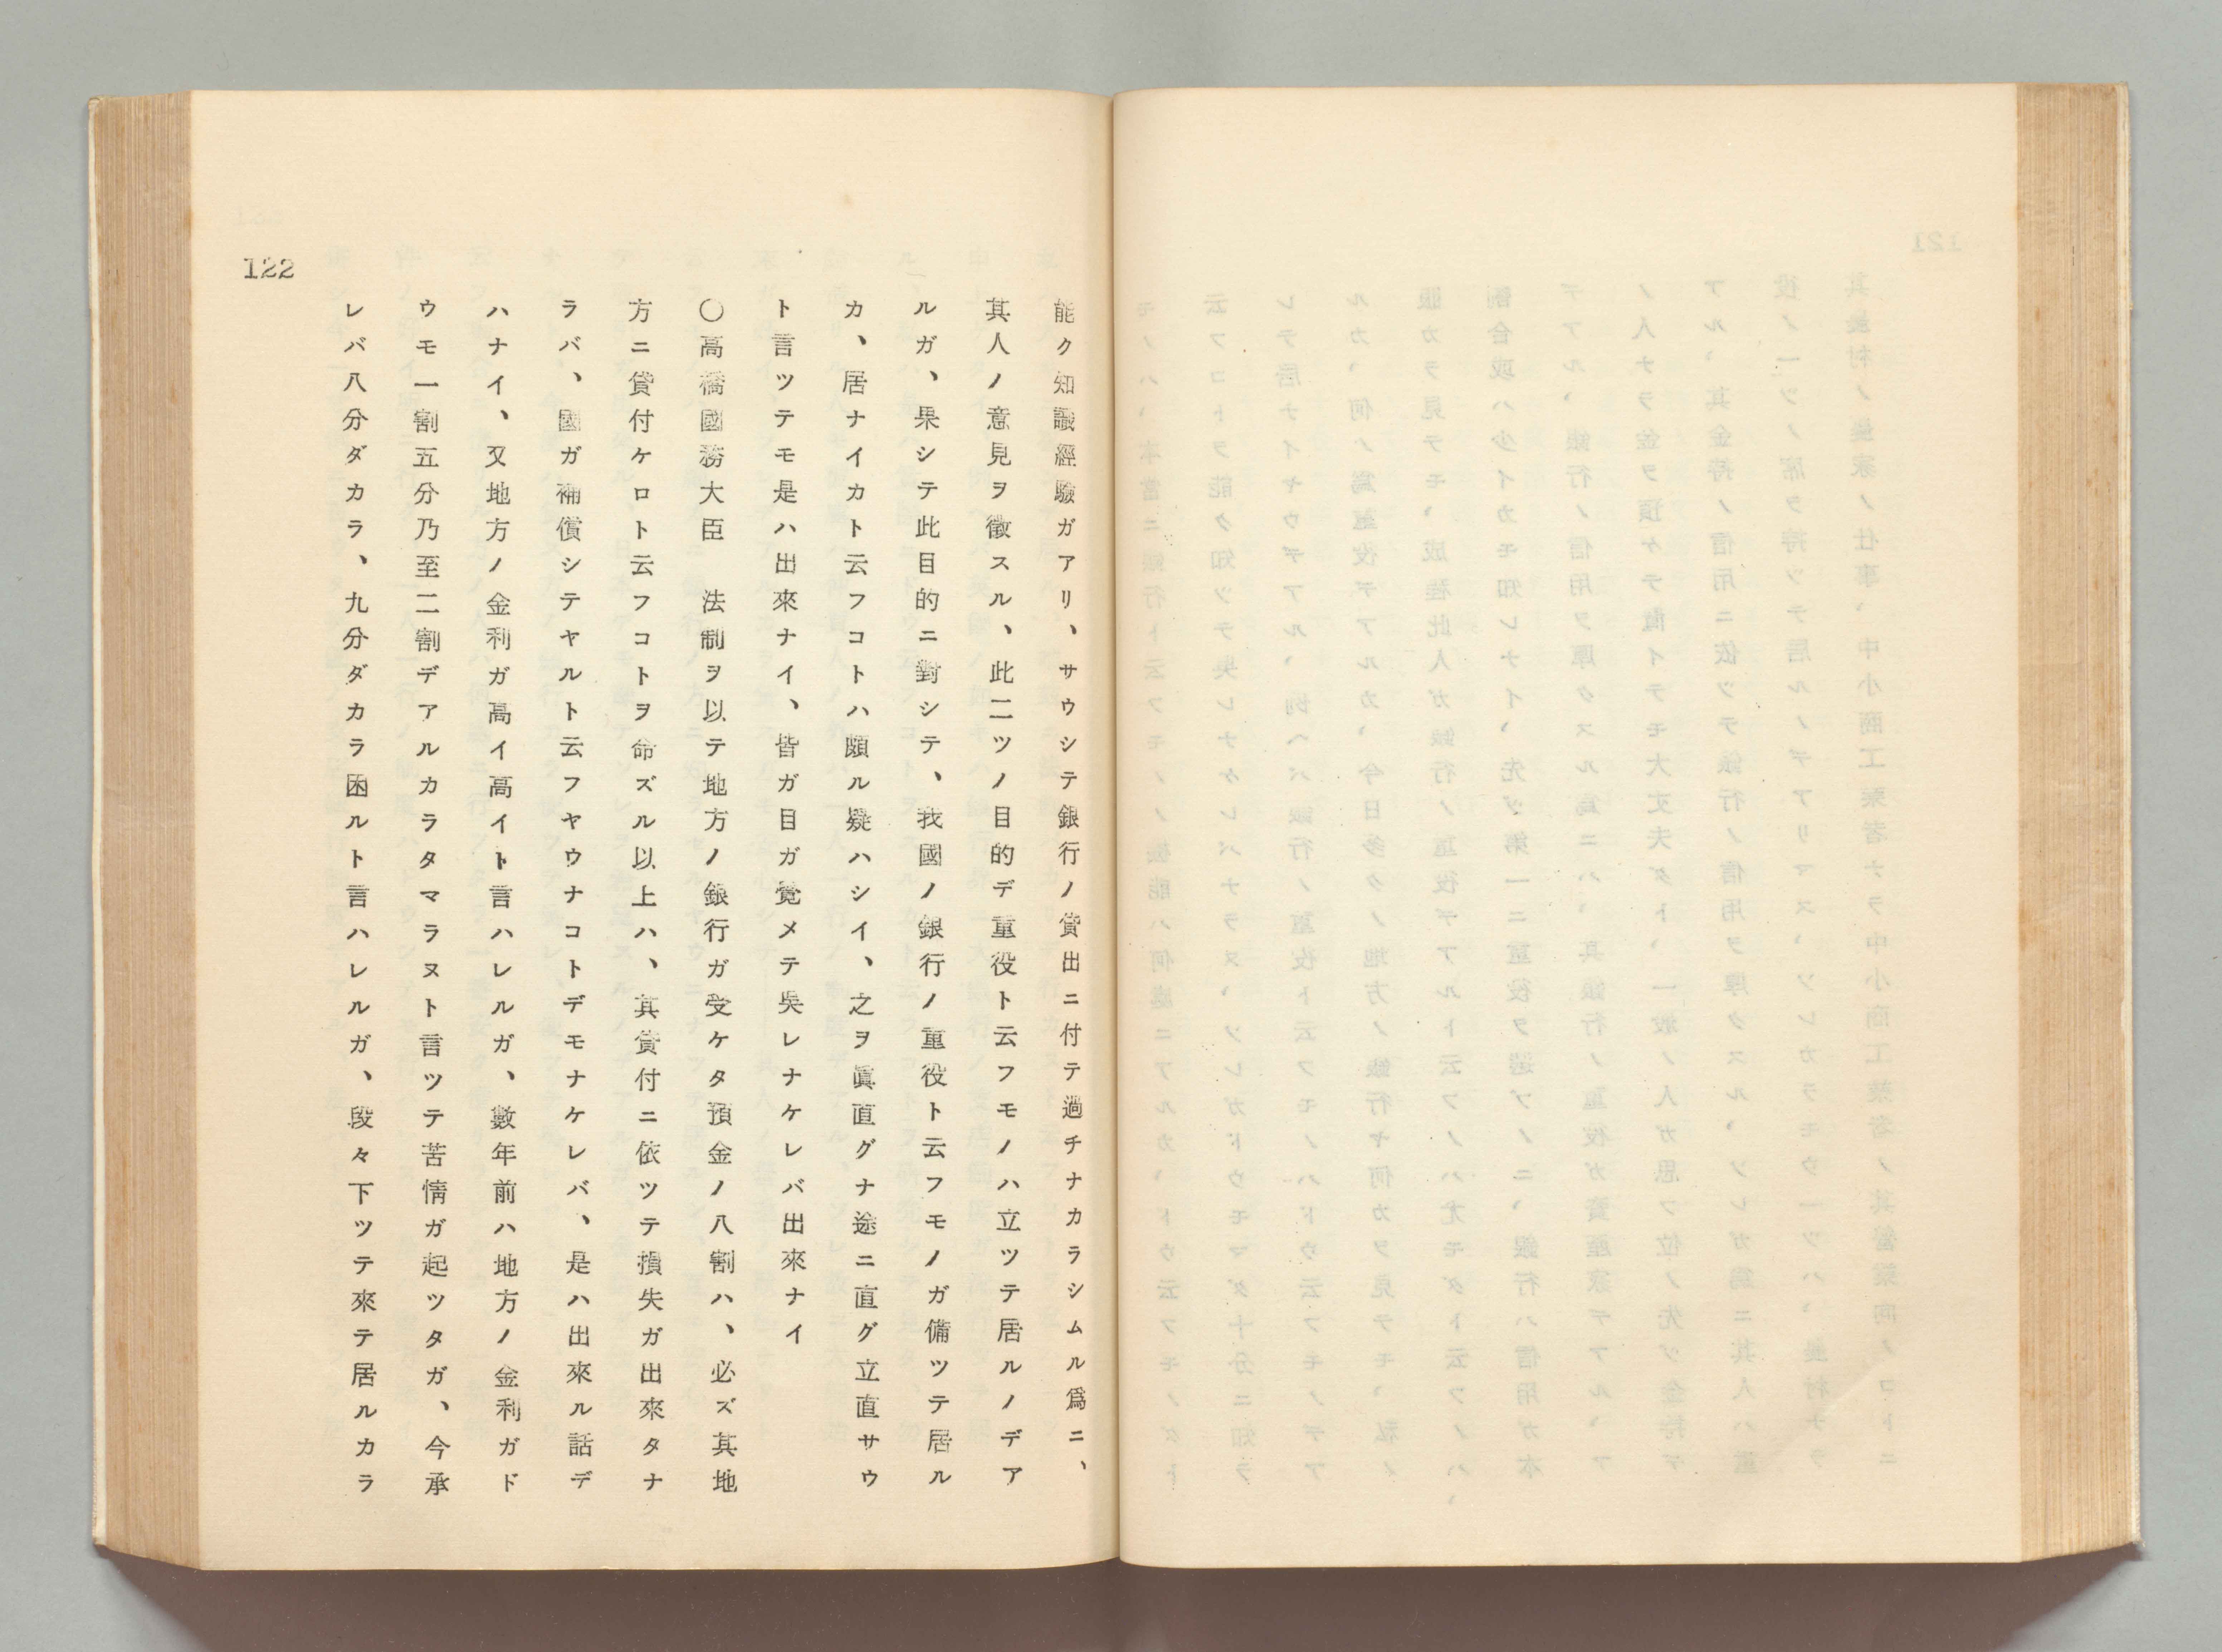 122
能ク知識經驗ガアリ、サウシテ銀行ノ貸出ニ付テ過チナカラシムル爲ニ、
其人ノ意見ヲ徵スル、此二ツノ目的デ重役ト云フモノハ立ツテ居ルノデア
ルガ、果シテ此目的ニ對シテ、我國ノ銀行ノ重役ト云フモノガ備ツテ居ル
カ、居ナイカト云フコトハ頗ル疑ハシイ、之ヲ眞直グナ途ニ直グ立直サウ
ト言ツテモ是ハ出來ナイ、皆ガ目ガ覺メテ吳レナケレバ出來ナイ
〇高橋國務大臣　法制ヲ以テ地方ノ銀行ガ受ケタ預金ノ八割ハ、必ズ其地
方ニ貸付ケロト云フコトヲ命ズル以上ハ、其貸付ニ依ツテ損失ガ出來タナ
ラバ、國ガ補償シテヤルト云フヤウナコトデモナケレバ、是ハ出來ル話デ
ハナイ、又地方ノ金利ガ高イ高イト言ハレルガ、數年前ハ地方ノ金利ガド
ウモ一割五分乃至二割デアルカラタマラヌト言ツテ苦情ガ起ツタガ、今承
レバ八分ダカラ、九分ダカラ困ルト言ハレルガ、段々下ツテ來テ居ルカラ